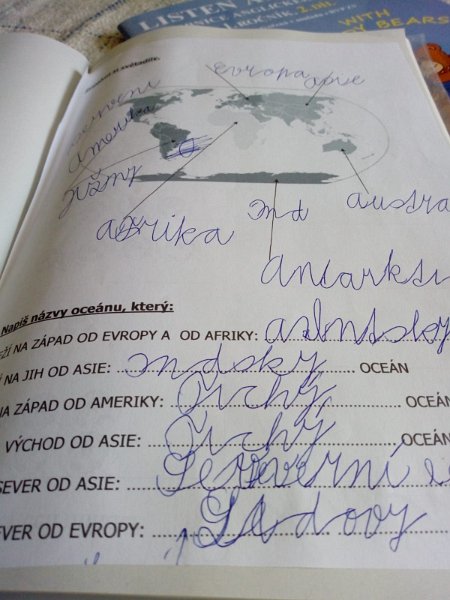 LISTEN
WITH
BEARS
ROČNÍK 2. DÍL
evropa asie
Amerika
jižny
afrika
ind
austra
antarkti
Napiš názvy oceánu, který:
ŽÍ NA ZÁPAD OD EVROPY A OD AFRIKY: atlntsky
Í NA JIH OD ASIE: indsky OCEÁN
NA ZÁPAD OD AMERIKY: Tichy OCEÁ
VÝCHOD OD ASIE: Tichy OCEÁ
SEVER OD ASIE: Severní
EVER OD EVROPY: Ledovy